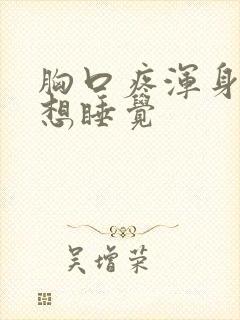 胸口疼浑身
想睡觉
吴增荣